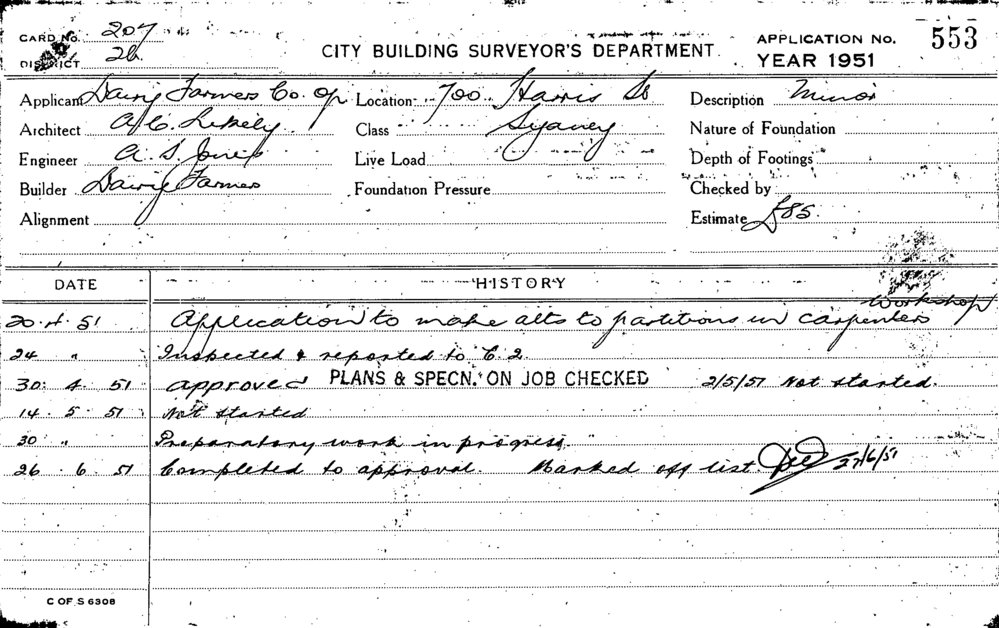 CARD No. 207
DISTRICT 2b
CITY BUILDING SURVEYOR'S DEPARTMENT.
APPLICATION No. 553
YEAR 1951
Applicant Dairy Farmers Co. Op Location 700 Harris St Description Minor
Architect A. C. Class Sydney Nature of Foundation
Engineer A. S. Jones Live Load Depth of Footings
Builder Dairy Farmers Foundation Pressure Checked by
Alignment Estimate £85.
DATE HISTORY
20.4.51 Application to make alts to partitions in carpenters workshop
24 " Inspected & reported to C.2.
30. 4. 51 approved PLANS & SPECN. ON JOB CHECKED 2/5/51 Not started.
14. 5. 51 Not started
30 " Preparatory work in progress.
26. 6. 51 Completed to approval. Marked off list. 27/6/51
C OF S 6308